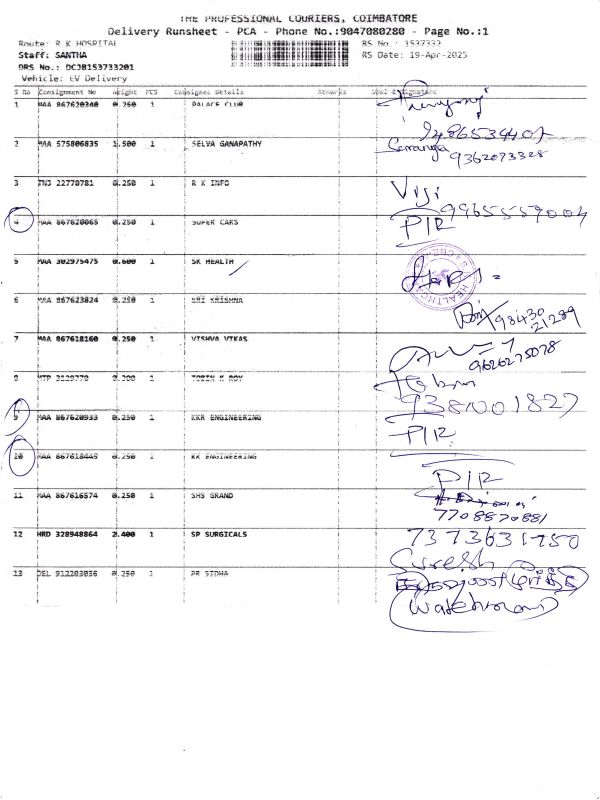 THE PROFESSIONAL COURIERS, COIMBATORE
Delivery Runsheet - PCA - Phone No.:9047080280 - Page No.:1
Route: R K HOSPITAL RS No : 1537332
Staff: SANTHA RS Date: 19-Apr-2025
DRS No.: DCJB153733201
Vehicle: EV Delivery
S No Consignment No Weight PCS Consignee Details Remarks Seal & Signature
1 MAA 867620340 0.250 1 PALACE CLUB
9486534407
2 MAA 575806835 1.500 1 SELVA GANAPATHY
9362073328
3 TNJ 22770781 0.250 1 R K INFO Viji
9965559004
4 MAA 867620065 0.250 1 SUPER CARS P/R
5 MAA 302975475 0.600 1 SK HEALTH
6 MAA 867623824 0.250 1 SRI KRISHNA 98430
21289
7 MAA 867618160 0.250 1 VISHVA VIKAS
9626275078
8 MTP 3129770 1 TOBIN K ROY Tobin
9381001827
9 MAA 867620933 0.250 1 KKR ENGINEERING P/R
10 MAA 867618449 0.250 1 KK ENGINEERING P/R
11 MAA 867616574 0.250 1 SHS GRAND
7708870881
12 HRD 328948864 2.400 1 SP SURGICALS 7373631750
Suresh
13 DEL 912203036 0.250 1 PR SIDHA
(Watchman)